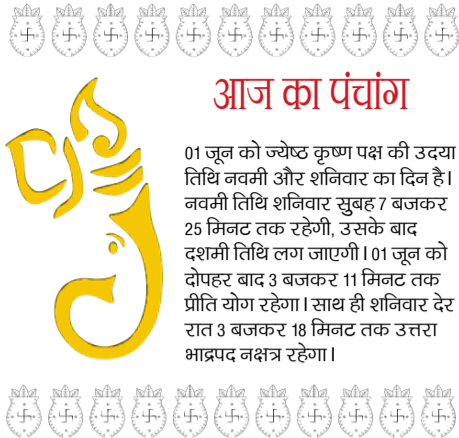 आज का पंचांग
01 जून को ज्येष्ठ कृष्ण पक्ष की उदया
तिथि नवमी और शनिवार का दिन है।
नवमी तिथि शनिवार सुबह 7 बजकर
25 मिनट तक रहेगी, उसके बाद
दशमी तिथि लग जाएगी। 01 जून को
दोपहर बाद 3 बजकर 11 मिनट तक
प्रीति योग रहेगा। साथ ही शनिवार देर
रात 3 बजकर 18 मिनट तक उत्तरा
भाद्रपद नक्षत्र रहेगा।